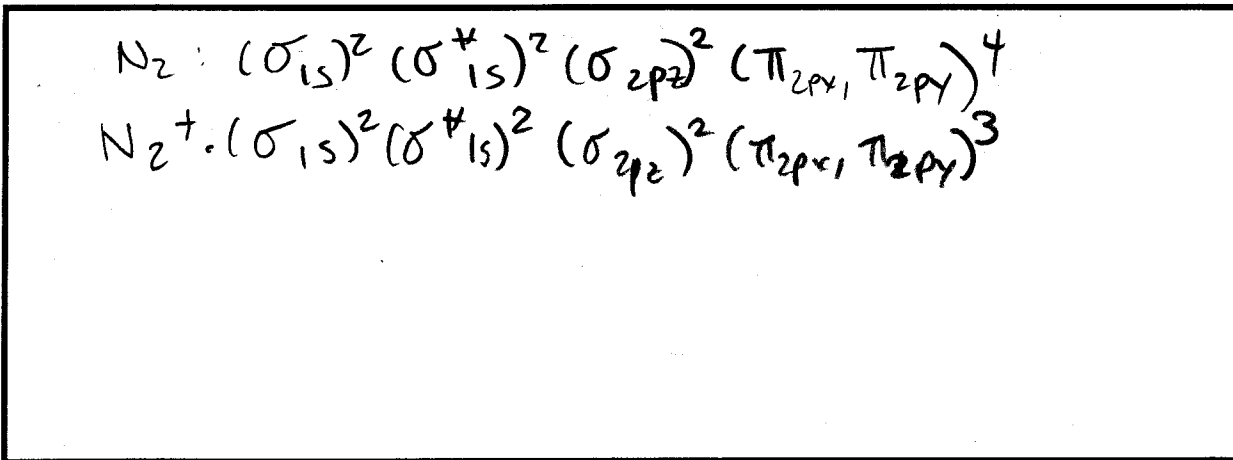 N₂ : (σ₁ₛ)² (σ*₁ₛ)² (σ₂pz)² (π₂px, π₂py)⁴
N₂⁺. (σ₁ₛ)² (σ*₁ₛ)² (σ₂pz)² (π₂px, π₂py)³